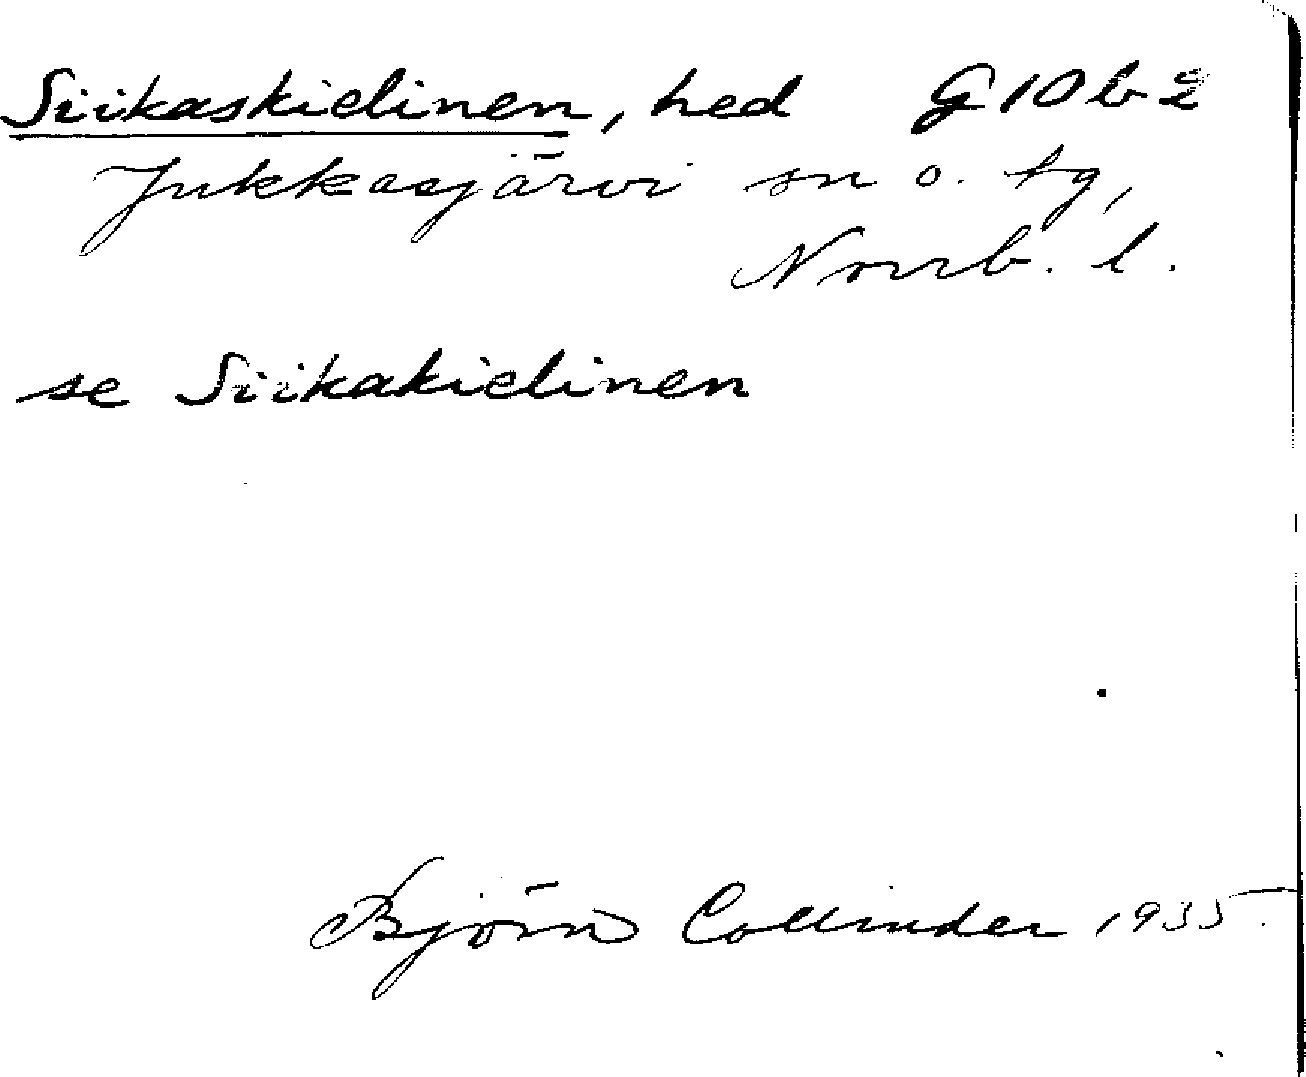 Siikaskielinen, hed G 10 b 2
Jukkasjärvi sn o. tg,
Norrb. l.
se Siikakielinen
Björn Collinder 1935.